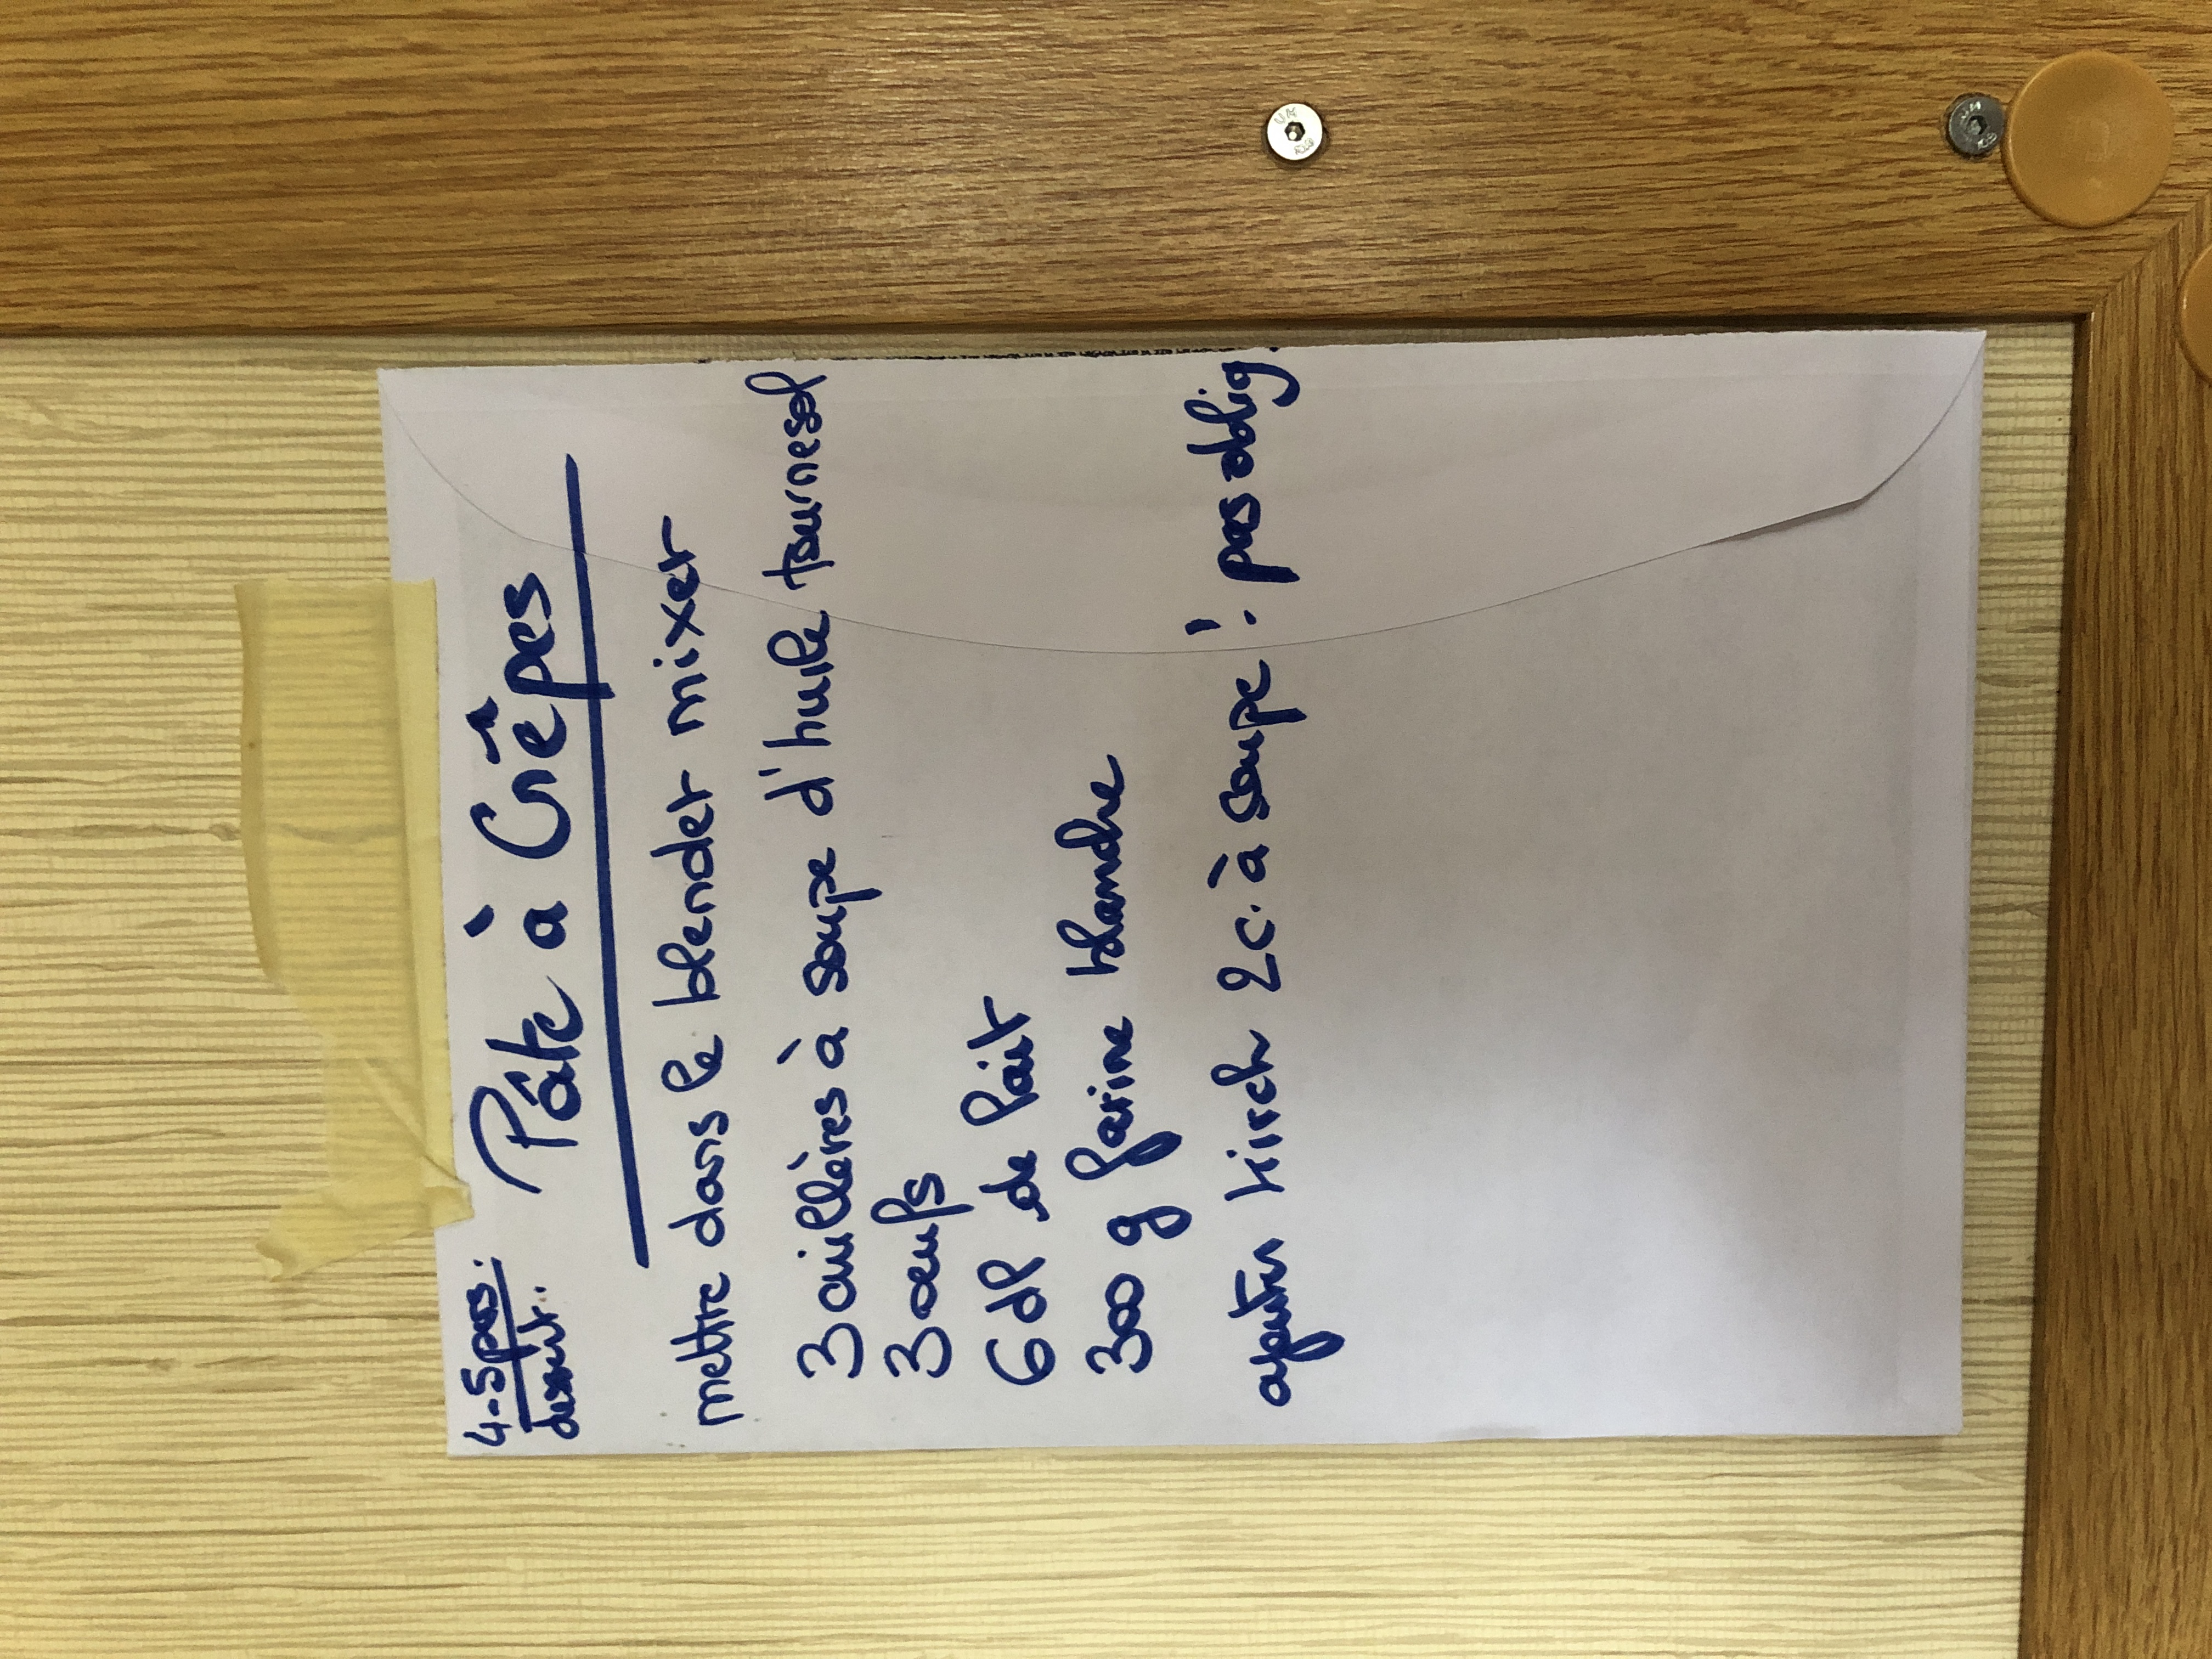 4-5 pers.
dessert..
Pâte à Crêpes
mettre dans le blender mixer
3 cuillères à soupe d'huile tournesol
3 oeufs
6 dl de lait
300 g farine blanche
ajouter kirsch 2c. à soupe ! pas oblig.